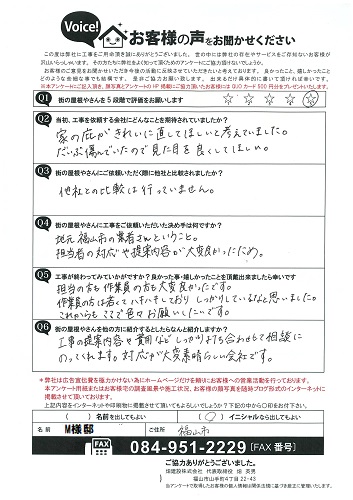 Voice!
お客様の声をお聞かせください
この度は弊社に工事をご用命頂き誠にありがとうございました。世の中には弊社の存在やサービスをご存知ないお客様が
沢山いらっしゃいます。
お客様のご意見をお聞かせいただき今後の活動に反映させていただきたいと考えております。良かったこと、嬉しかったこと
Q1 街の屋根やさんを5段階で評価をお願いします
☆ ☆ ☆ ☆ ☆
Q2 当初、工事を依頼する会社にどんなことを期待されていましたか?
家の庇がきれいに直してほしいと考えていました。
だいぶ傷んでいたので見た目を良くしてほしい。
Q3 街の屋根やさんにご依頼いただく際に他社と比較されましたか?
他社との比較は行っていません。
Q4 街の屋根やさんに工事をご依頼いただいた決め手は何ですか?
地元福山市の業者さんということ。
担当者の対応や提案内容が大変良かったため。
Q5 工事が終わってみていかがですか?良かった事・嬉しかったことを頂戴出来ましたら幸いです
担当の方も作業員の方も大変良かったです。
作業員の方は若くてハキハキしておりしっかりしているなと思いました。
これからもここで色々お願いしたいです。
Q6 街の屋根やさんを他の方に紹介するとしたらなんと紹介しますか?
工事の提案内容や費用などしっかり打ち合わせて相談に
のってくれます。対応が大変素晴らしい会社です。
※弊社は広告宣伝費を極力かけない為にホームページだけを頼りにお客様への営業活動を行っております。
本アンケート用紙またはお客様宅での調査風景や施工状況、お客様の顔写真を随時ブログ形式のインターネットに
掲載させて頂いております。
上記内容をインターネットや印刷物に掲載させて頂いてもよろしいでしょうか?下記の中から○印をお付け下さい。
( )名前を出してもよい (○)イニシャルなら出してもよい
お名前 M様邸 ご住所 福山市
FAX 084-951-2229 [FAX番号]
ご協力ありがとうございました。
福山市山手町4丁目22-43
※アンケートで取得したお客様の個人情報は関係する法令に基づき適正に管理いたします。